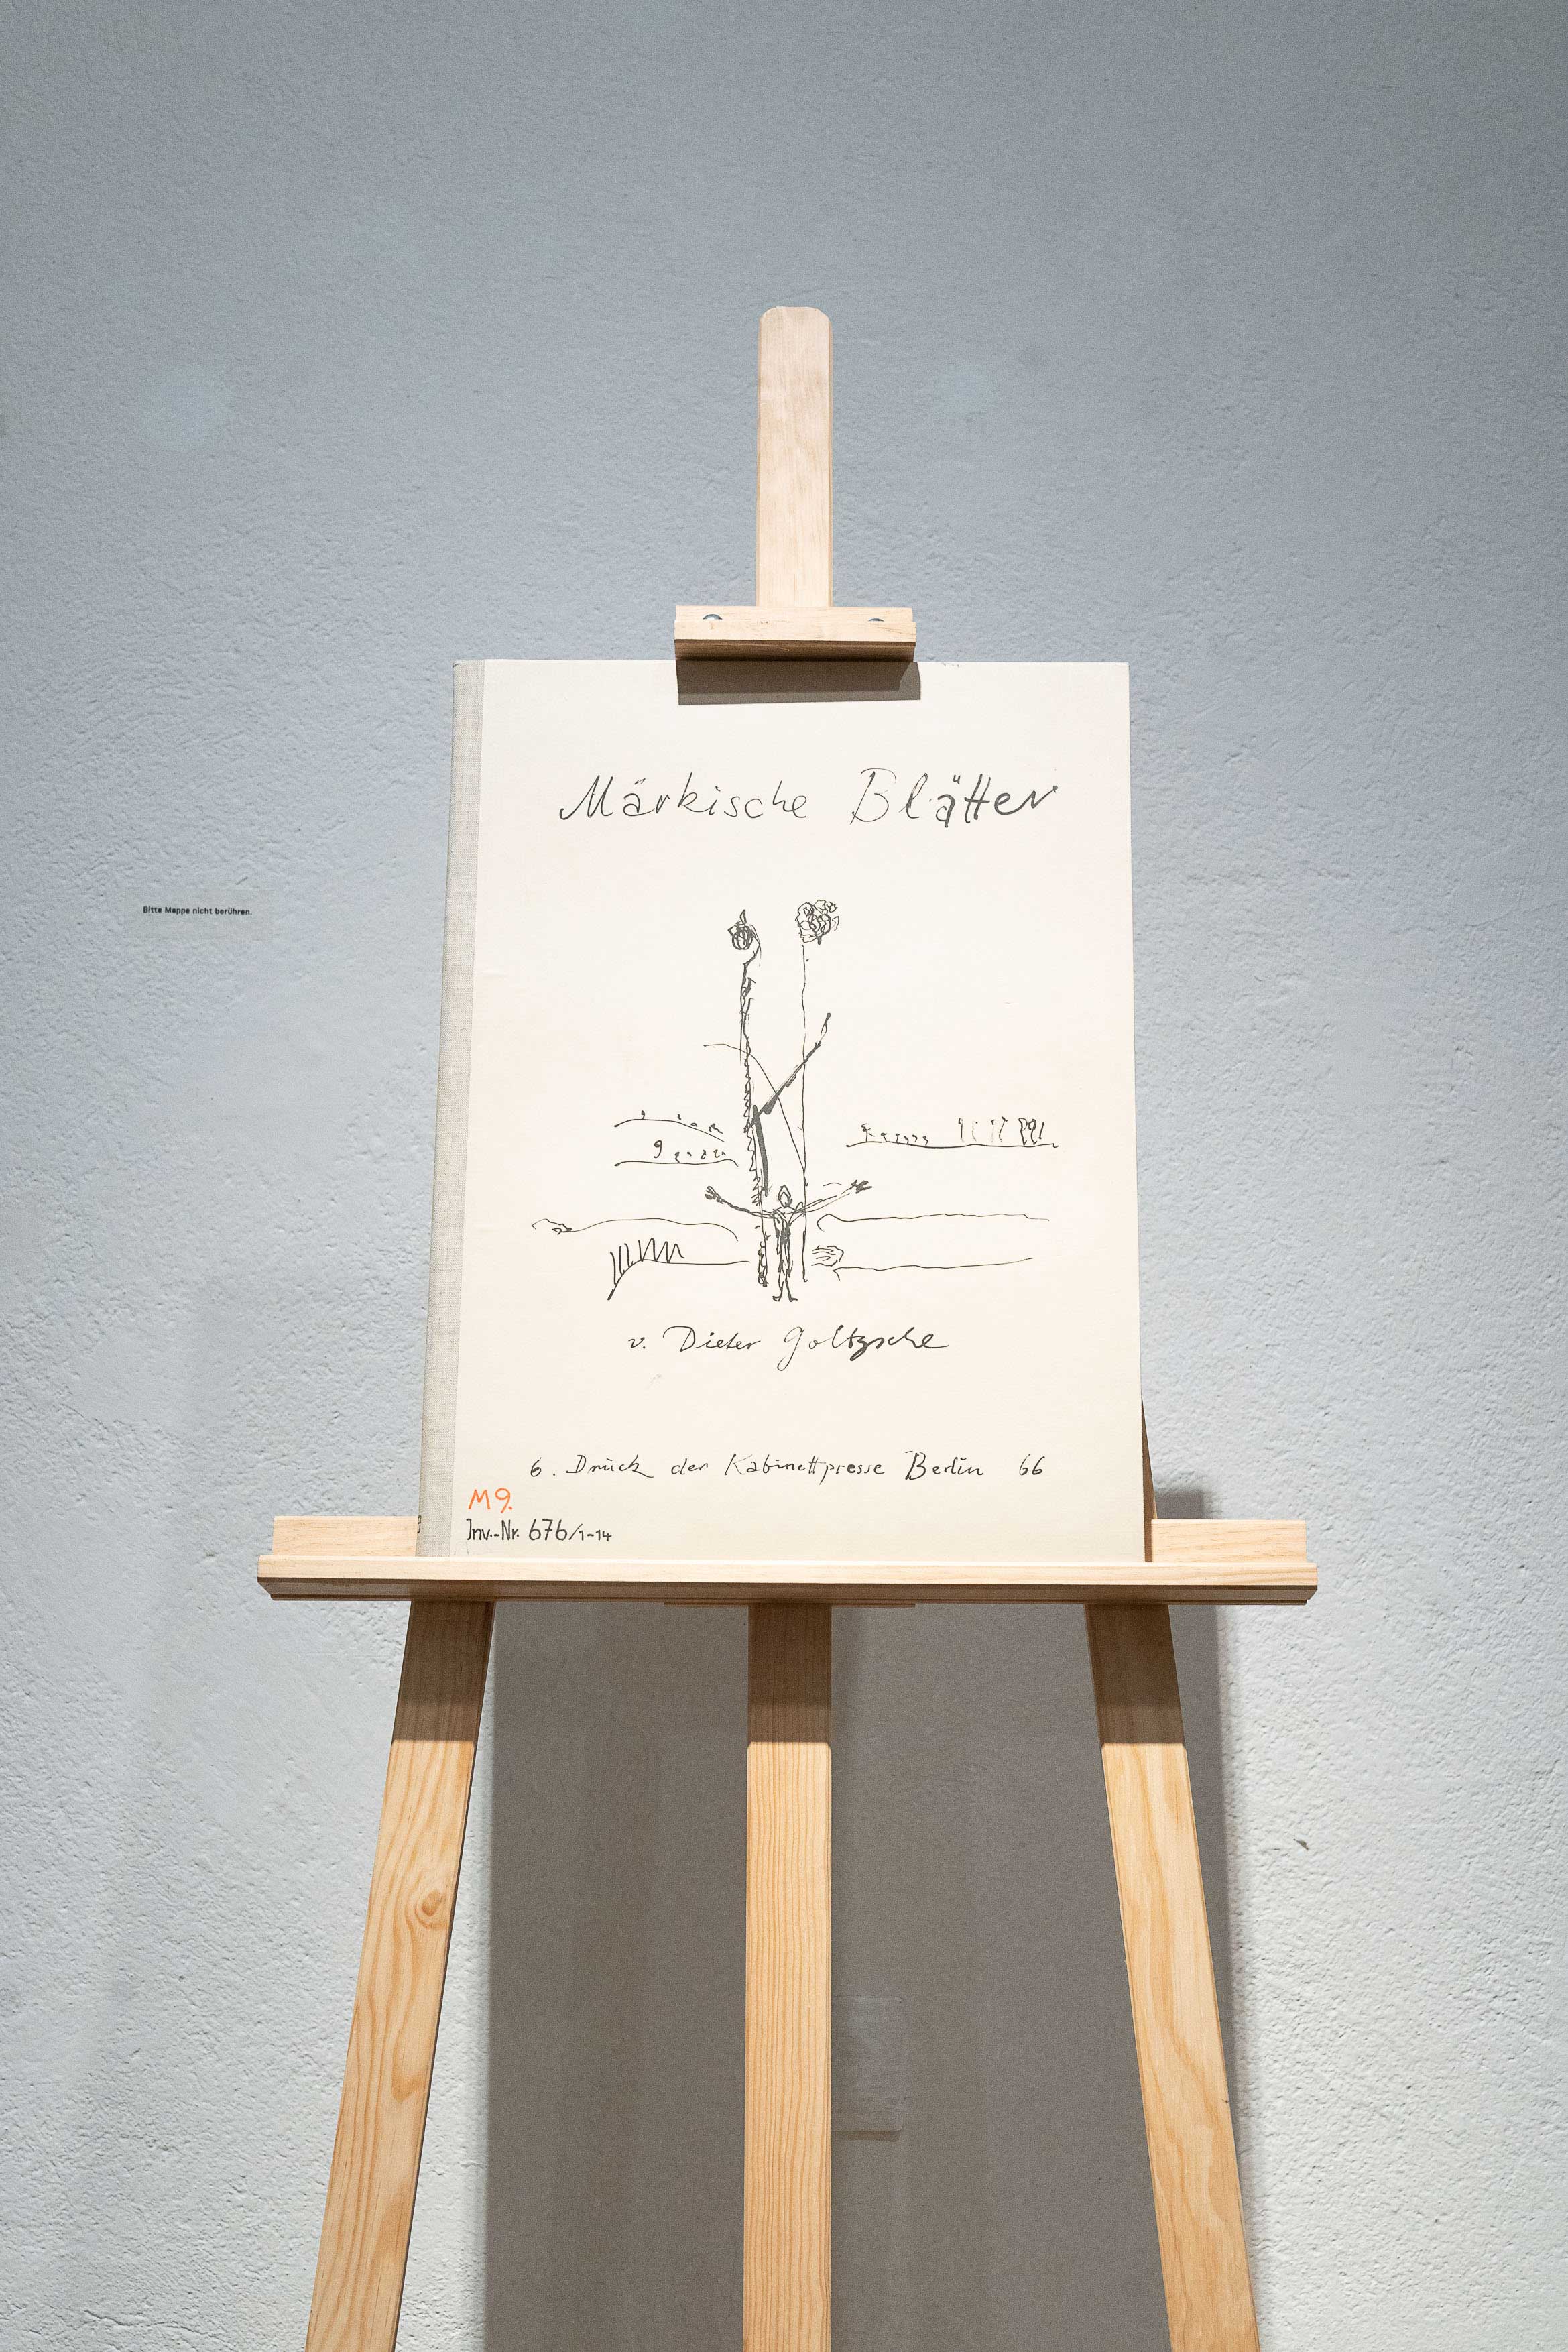 Märkische Blätter
Bitte Mappe nicht berühren.
v. Dieter Goltzsche
6. Druck der Kabinettpresse Berlin 66
M9.
Inv.-Nr. 676/1-14